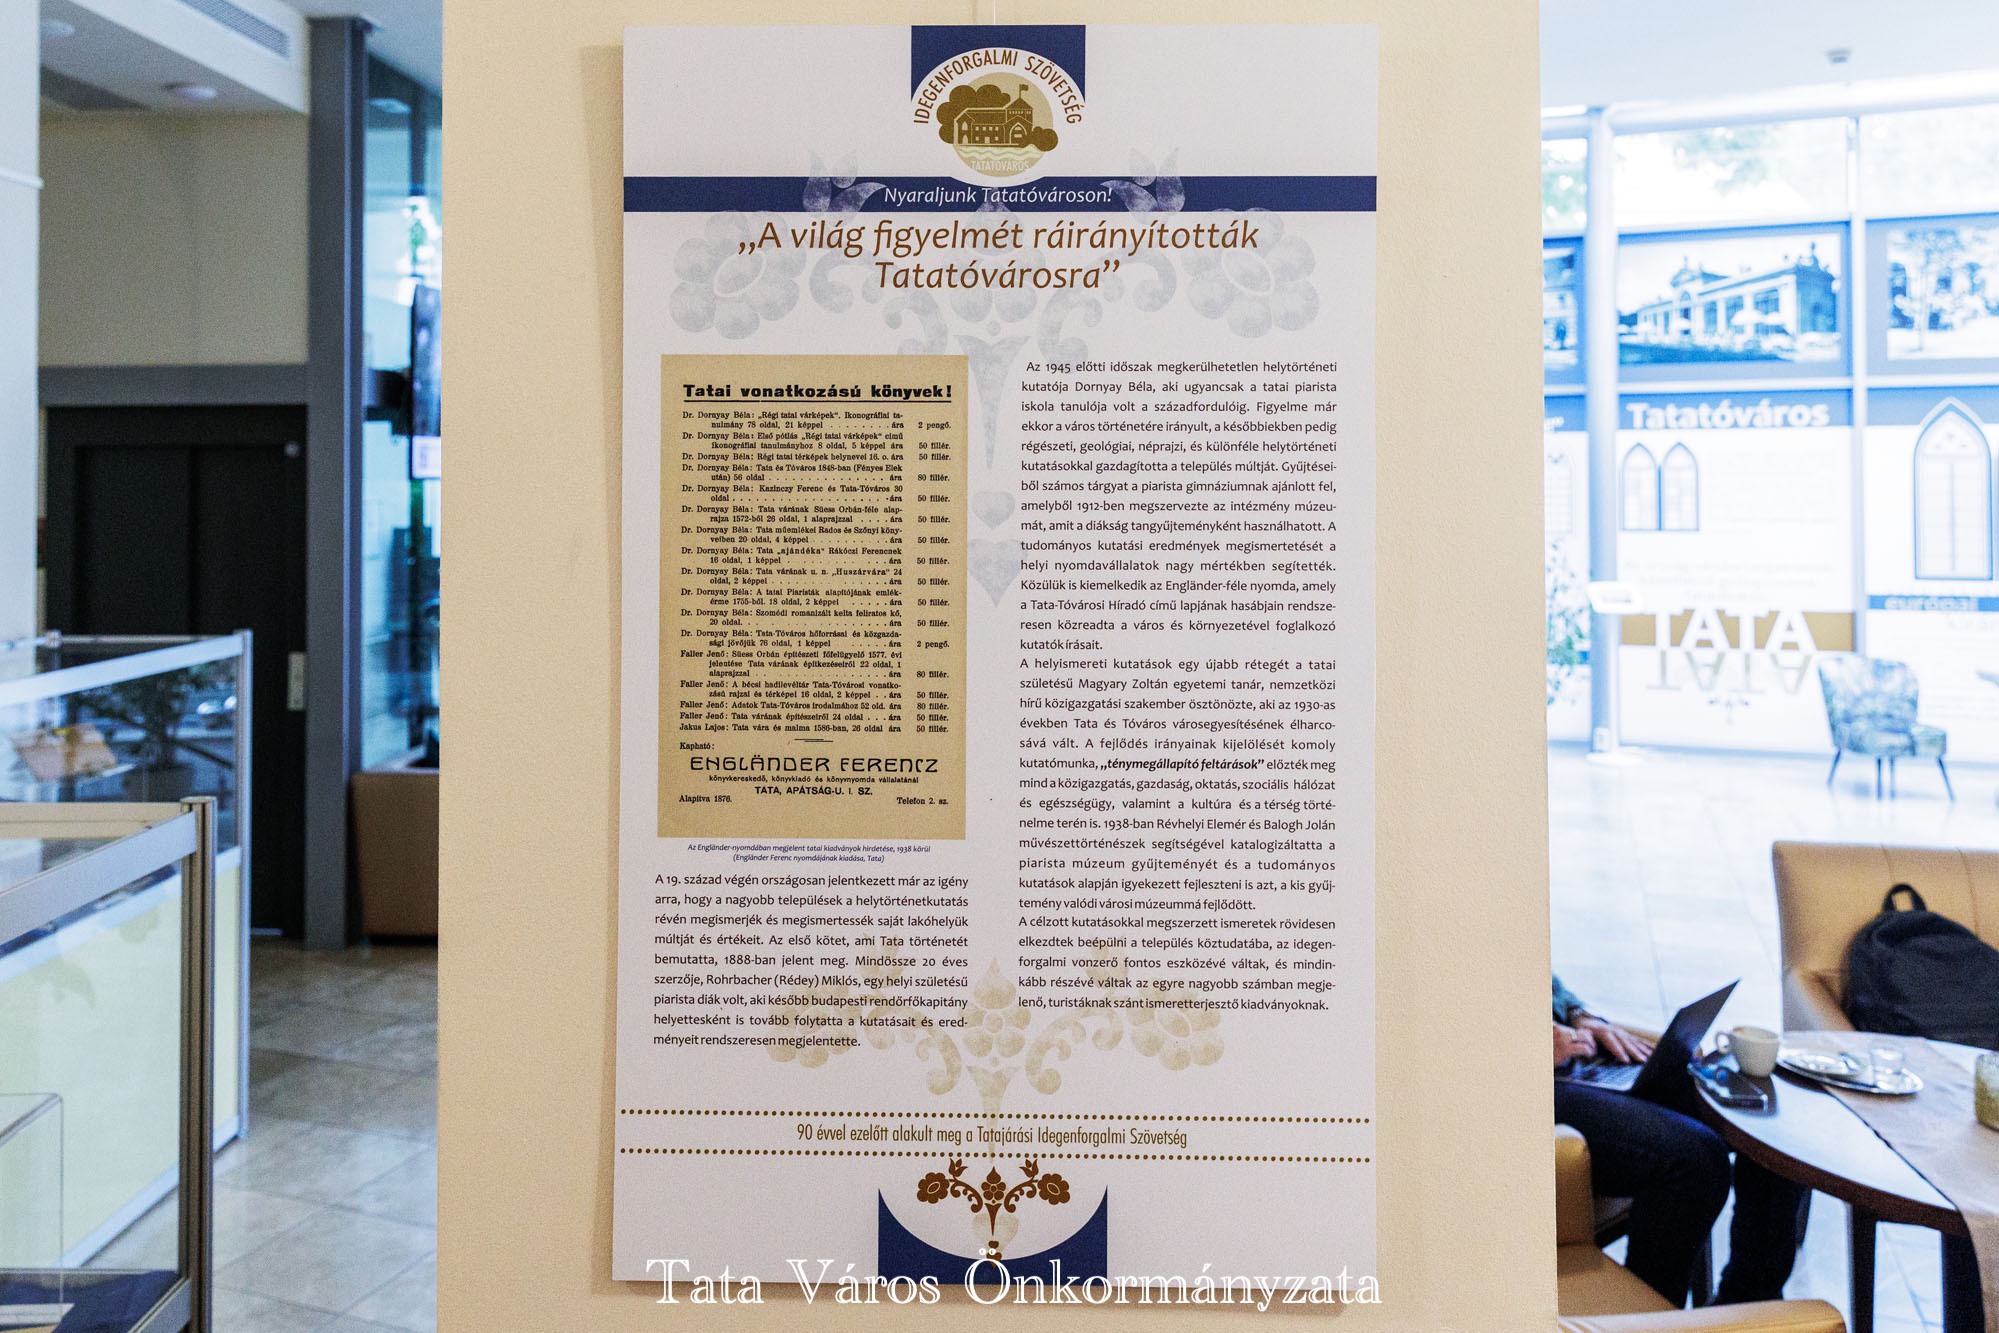 IDEGENFORGALMI SZÖVETSÉG
TATATÓVÁROS
Nyaraljunk Tatatóvároson!
„A világ figyelmét ráirányították
Tatatóvárosra”
Tatai vonatkozású könyvek!
Dr. Dornyay Béla: „Régi tatai várképek“. Ikonográfiai ta-
nulmány 78 oldal, 21 képpel . . . . . . . . ára 2 pengő.
Dr. Dornyay Béla: Első pótlás „Régi tatai várképek“ című
ikonográfiai tanulmányhoz 8 oldal, 5 képpel ára 50 fillér.
Dr. Dornyay Béla: Régi tatai térképek helynevei 16. o. ára 50 fillér.
Dr. Dornyay Béla: Tata és Tóváros 1848-ban (Fényes Elek
után) 56 oldal . . . . . . . . . . . . . ára 80 fillér.
Dr. Dornyay Béla: Kazinczy Ferenc és Tata-Tóváros 30
oldal . . . . . . . . . . . . . . . . . ára 50 fillér.
Dr. Dornyay Béla: Tata várának Süess Orbán-féle alap-
rajza 1572-ből 26 oldal, 1 alaprajzzal . . . . ára 50 fillér.
Dr. Dornyay Béla: Tata műemlékei Rados és Szőnyi köny-
veiben 20 oldal, 4 képpel . . . . . . . . . ára 50 fillér.
Dr. Dornyay Béla: Tata „ajándéka“ Rákóczi Ferencnek
16 oldal, 1 képpel . . . . . . . . . . . ára 50 fillér.
Dr. Dornyay Béla: Tata várának u. n. „Huszárvára“ 24
oldal, 2 képpel . . . . . . . . . . . . . ára 50 fillér.
Dr. Dornyay Béla: A tatai Piaristák alapítójának emlék-
érme 1755-ből. 18 oldal, 2 képpel . . . . . ára 50 fillér.
Dr. Dornyay Béla: Szomódi romanizált kelta feliratos kő,
20 oldal. . . . . . . . . . . . . . . . ára 50 fillér.
Dr. Dornyay Béla: Tata-Tóváros hőforrásai és közgazda-
sági jövőjük 76 oldal, 1 képpel . . . . . . ára 2 pengő.
Faller Jenő: Süess Orbán építészeti főfelügyelő 1577. évi
jelentése Tata várának építkezéseiről 22 oldal, 1
alaprajzzal . . . . . . . . . . . . . . ára 80 fillér.
Faller Jenő: A bécsi hadilevéltár Tata-Tóvárosi vonatko-
zású rajzai és térképei 16 oldal, 2 képpel . . ára 50 fillér.
Faller Jenő: Adatok Tata-Tóváros irodalmához 52 old. ára 80 fillér.
Faller Jenő: Tata várának építészeiről 24 oldal . . . ára 50 fillér.
Jakus Lajos: Tata vára és malma 1586-ban, 26 oldal ára 50 fillér.
Kapható:
ENGLÄNDER FERENCZ
könyvkereskedő, könyvkiadó és könyvnyomda vállalatánál
TATA, APÁTSÁG-U. I. SZ.
Alapítva 1876. Telefon 2. sz.
Az Engländer-nyomdában megjelent tatai kiadványok hirdetése, 1938 körül
(Engländer Ferenc nyomdájának kiadása, Tata)
A 19. század végén országosan jelentkezett már az igény
arra, hogy a nagyobb települések a helytörténetkutatás
révén megismerjék és megismertessék saját lakóhelyük
múltját és értékeit. Az első kötet, ami Tata történetét
bemutatta, 1888-ban jelent meg. Mindössze 20 éves
szerzője, Rohrbacher (Rédey) Miklós, egy helyi születésű
piarista diák volt, aki később budapesti rendőrfőkapitány
helyettesként is tovább folytatta a kutatásait és ered-
ményeit rendszeresen megjelentette.
Az 1945 előtti időszak megkerülhetetlen helytörténeti
kutatója Dornyay Béla, aki ugyancsak a tatai piarista
iskola tanulója volt a századfordulóig. Figyelme már
ekkor a város történetére irányult, a későbbiekben pedig
régészeti, geológiai, néprajzi, és különféle helytörténeti
kutatásokkal gazdagította a település múltját. Gyűjtései-
ből számos tárgyat a piarista gimnáziumnak ajánlott fel,
amelyből 1912-ben megszervezte az intézmény múzeu-
mát, amit a diákság tangyűjteményként használhatott. A
tudományos kutatási eredmények megismertetését a
helyi nyomdavállalatok nagy mértékben segítették.
Közülük is kiemelkedik az Engländer-féle nyomda, amely
a Tata-Tóvárosi Híradó című lapjának hasábjain rendsze-
resen közreadta a város és környezetével foglalkozó
kutatók írásait.
A helyismereti kutatások egy újabb rétegét a tatai
születésű Magyary Zoltán egyetemi tanár, nemzetközi
hírű közigazgatási szakember ösztönözte, aki az 1930-as
években Tata és Tóváros városegyesítésének élharco-
sává vált. A fejlődés irányainak kijelölését komoly
kutatómunka, „ténymegállapító feltárások” előzték meg
mind a közigazgatás, gazdaság, oktatás, szociális hálózat
és egészségügy, valamint a kultúra és a térség törté-
nelme terén is. 1938-ban Révhelyi Elemér és Balogh Jolán
művészettörténészek segítségével katalogizáltatta a
piarista múzeum gyűjteményét és a tudományos
kutatások alapján igyekezett fejleszteni is azt, a kis gyűj-
temény valódi városi múzeummá fejlődött.
A célzott kutatásokkal megszerzett ismeretek rövidesen
elkezdtek beépülni a település köztudatába, az idegen-
forgalmi vonzerő fontos eszközévé váltak, és mindin-
kább részévé váltak az egyre nagyobb számban megje-
lenő, turistáknak szánt ismeretterjesztő kiadványoknak.
90 évvel ezelőtt alakult meg a Tatajárási Idegenforgalmi Szövetség
Tatatóváros
európai
TATA
Tata Város Önkormányzata